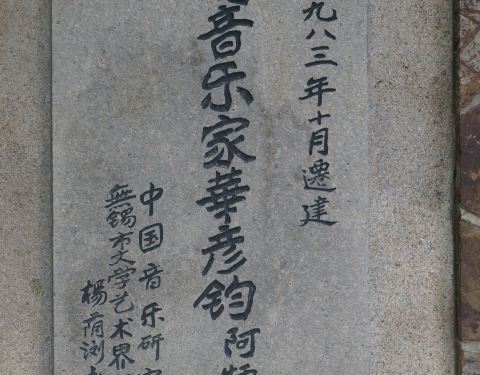 九八三年十月遷建
音乐家華彦钧阿
中国音乐研
無锡市文学艺术界
楊荫浏